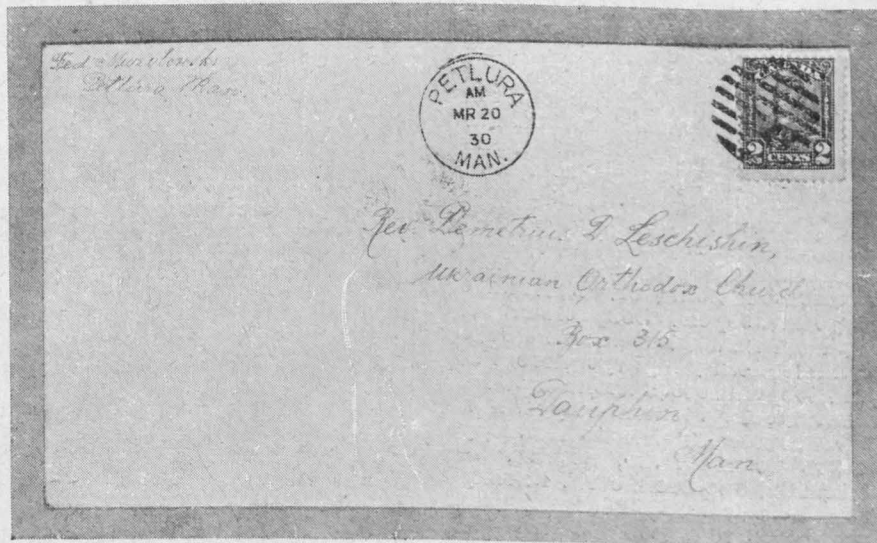 Petlura Man.
PETLURA
AM
MR 20
30
MAN.
2 CENTS 2
Rev. Demetrius D Leschishin,
Ukrainian Orthodox Church
Box 315
Dauphin,
Man.